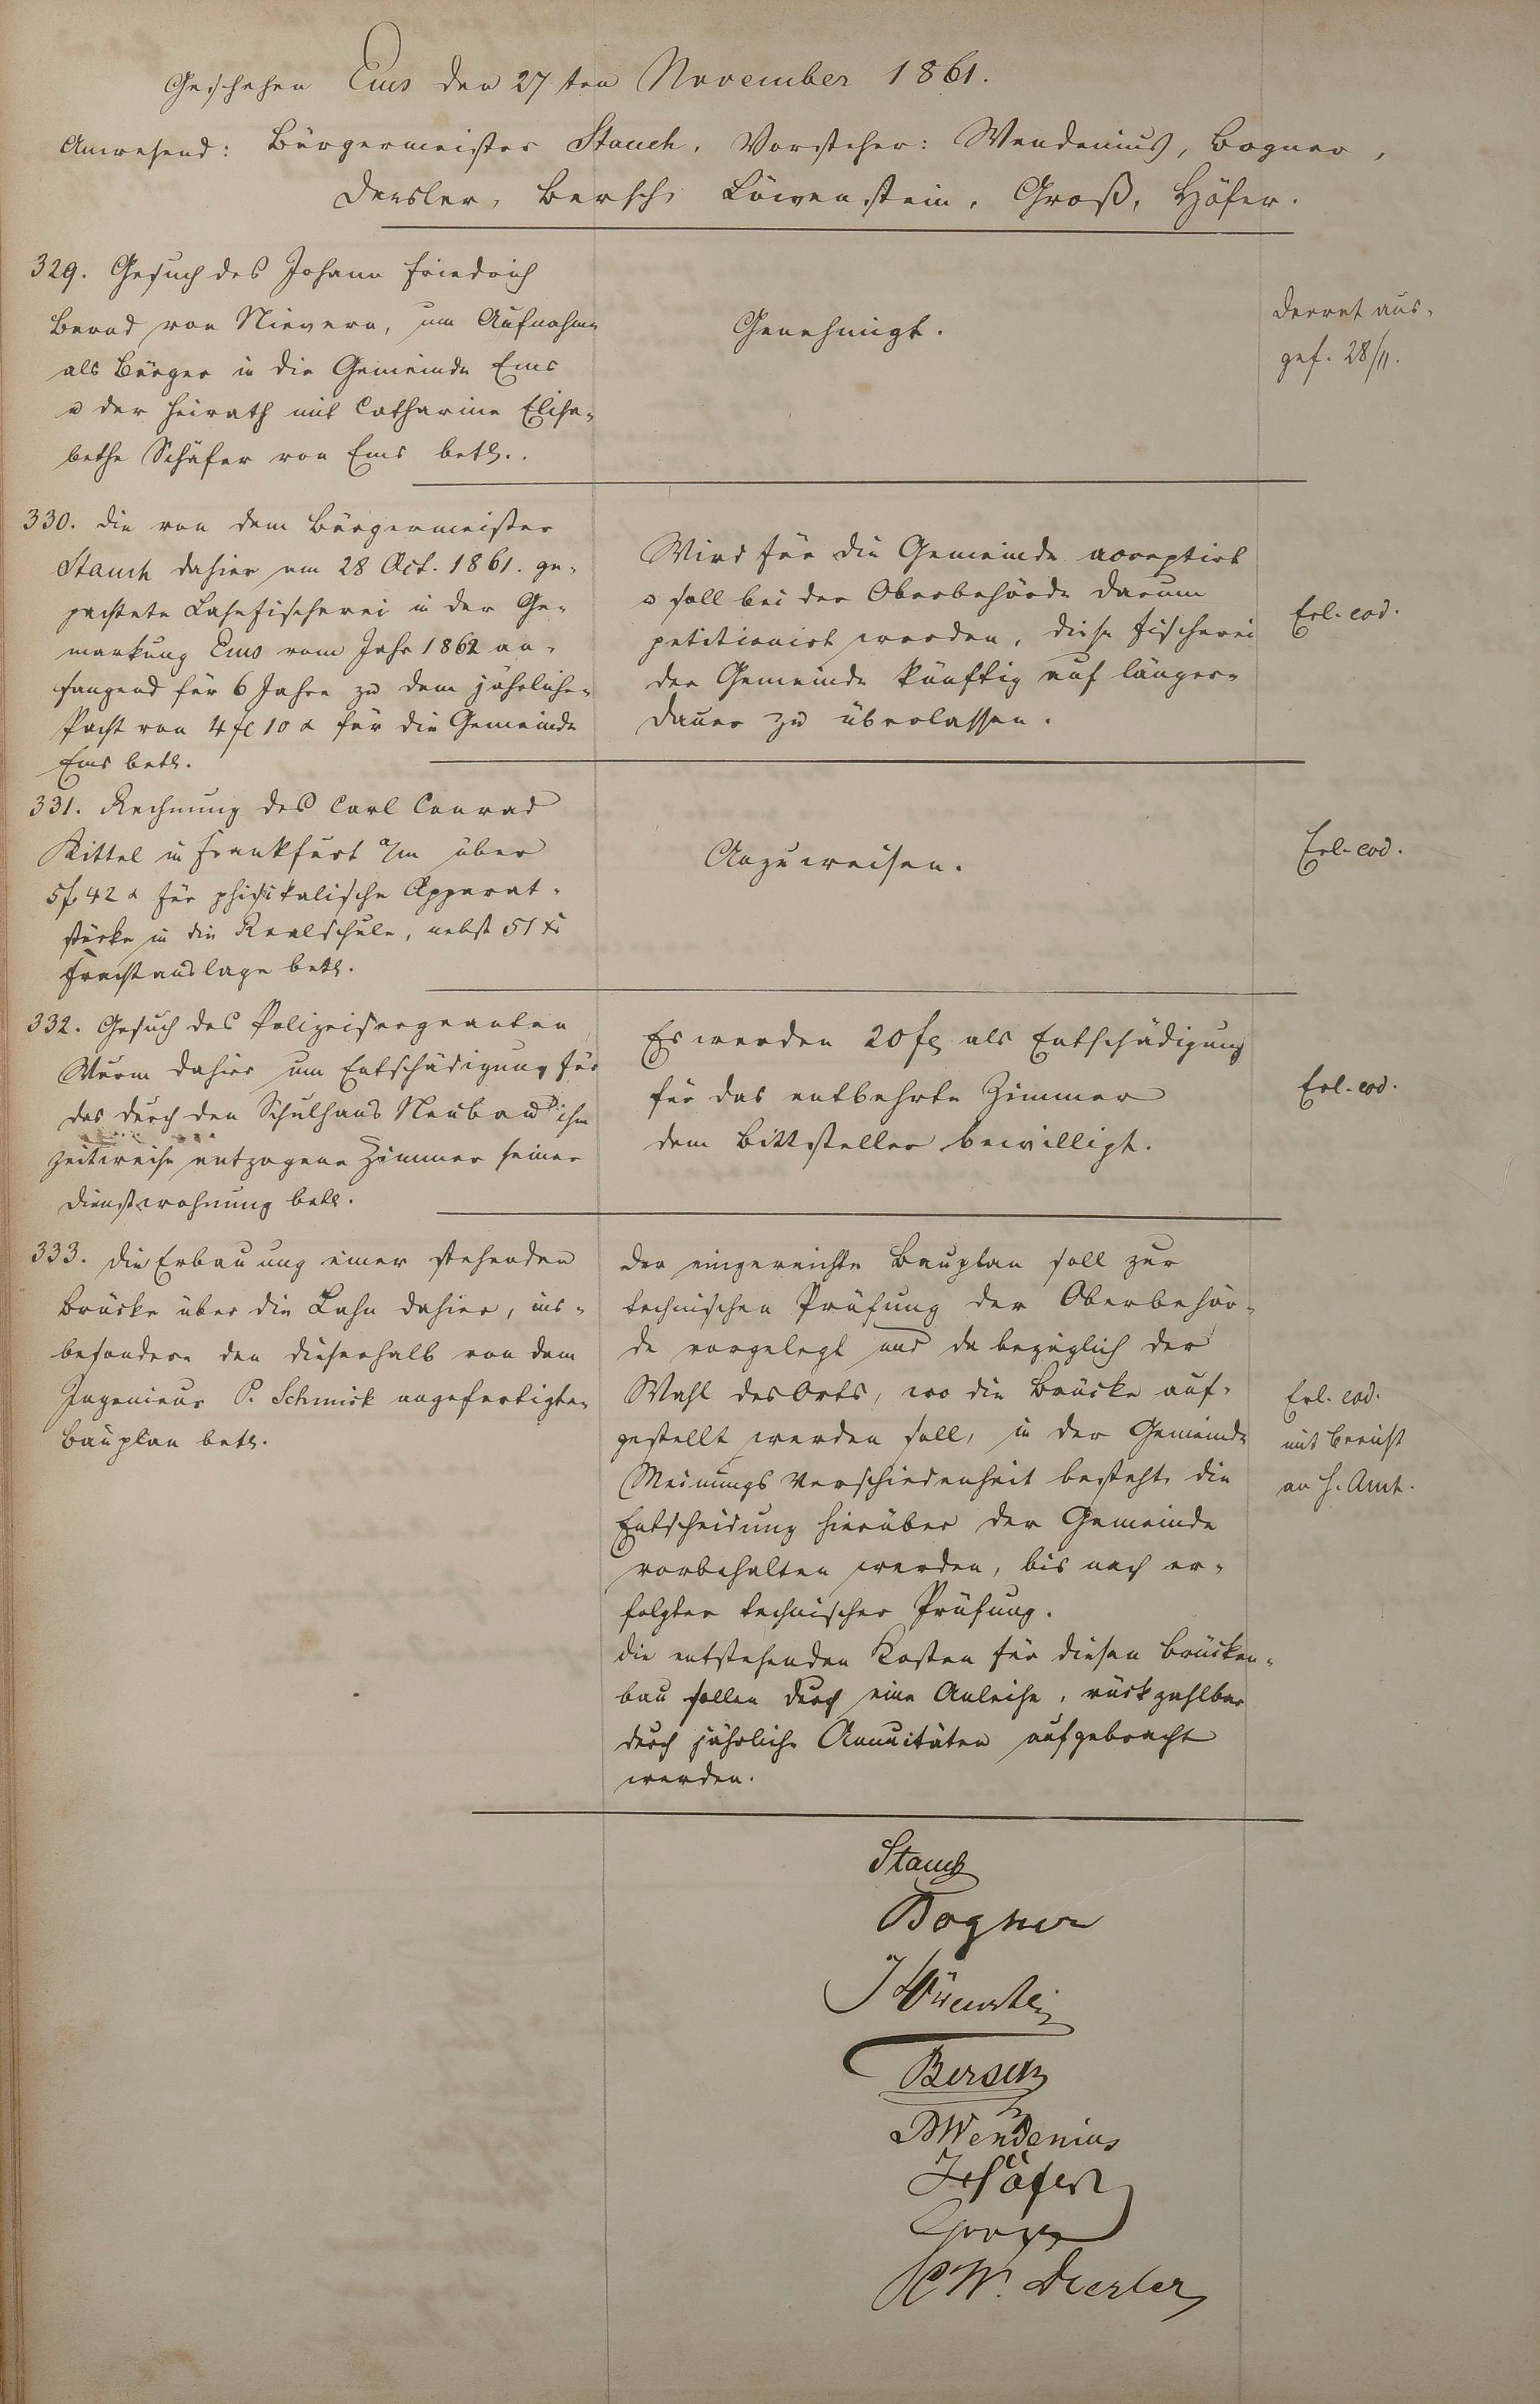 Geschehen Ems den 27ten November 1861.
Anwesend: Bürgermeister Stauch, Vorsteher: Wendenius, Bogner,
Deusler, Bersch, Löwenstein, Groß, Höfer.
329. Gesuch des Johann Friedrich
Bernd von Nievern, um Aufnahme
als Bürger in die Gemeinde Ems
u der Heirath mit Catharine Elisa-
bethe Schäfer von Ems betr.
Genehmigt.
Decret aus-
gef. 28/11.
330. Die von dem Bürgermeister
Stauch dahier am 28 Oct. 1861. ge-
pachtete Lahnfischerei in der Ge-
markung Ems vom Jahr 1862 an-
fangend für 6 Jahre zu dem jährlichen
Pacht von 4 fl 10 x für die Gemeinde
Ems betr.
Wird für die Gemeinde acceptirt
u soll bei der Oberbehörde darum
petitionirt werden, diese Fischerei
der Gemeinde künftig auf längere
Dauer zu überlassen.
Erl. eod.
331. Rechnung des Carl Conrad
Kittel in Frankfurt a/m über
5 f 42 x für phisikalische Apparat-
stücke in die Realschule, nebst 51 xr
Frachtauslage betr.
Anzuweisen.
Erl. eod.
332. Gesuch des Polizeisergeanten
Wurm dahier um Entschädigung für
das durch den Schulhaus Neubau ihm
zeitweise entzogene Zimmer seiner
Dienstwohnung betr.
Es werden 20 fl als Entschädigung
für das entbehrte Zimmer
dem Bittsteller bewilligt.
Erl. eod.
333. Die Erbauung einer stehenden
Brücke über die Lahn dahier, ins-
besondere den dieserhalb von dem
Ingenieur P. Schmick angefertigten
Bauplan betr.
Der eingereichte Bauplan soll zur
technischen Prüfung der Oberbehör-
de vorgelegt und da bezüglich der
Wahl des Orts, wo die Brücke auf-
gestellt werden soll, in der Gemeinde
Meinungs Verschiedenheit besteht, die
Entscheidung hierüber der Gemeinde
vorbehalten werden, bis nach er-
folgter technischer Prüfung.
Die entstehenden Kosten für diesen Brücken-
bau sollen durch eine Anleihe, rückzahlbar
durch jährliche Annuitäten aufgebracht
werden.
Erl. eod.
mit Bericht
an H. Amt.
Stauch
Bogner
J Löwenstein
Bersch
Wendenius
J Höfer
Gross
W. Deusler